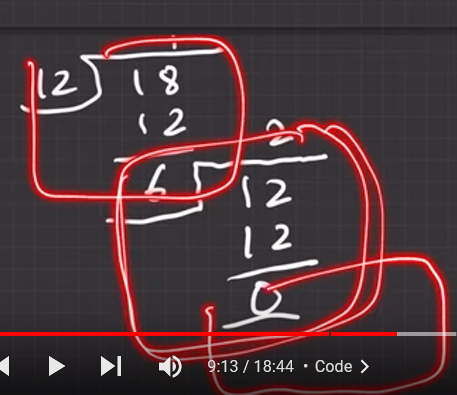 1
12 18
12
2
6 12
12
0
9:13 / 18:44 • Code >